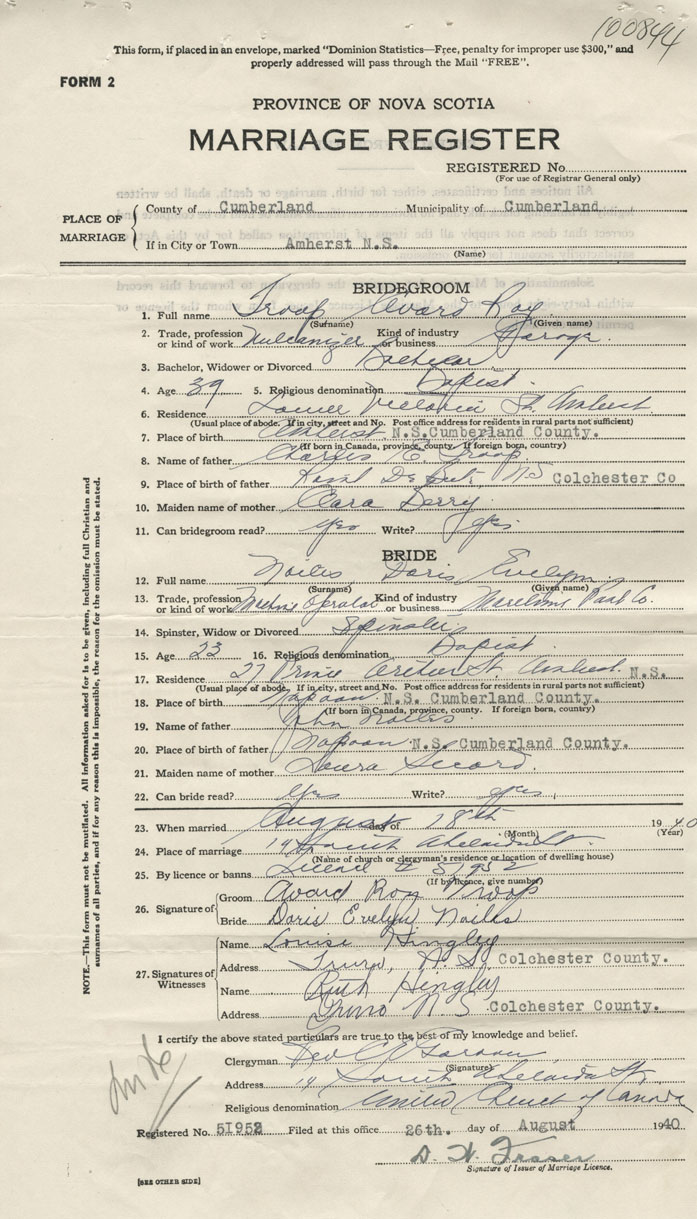 100844
This form, if placed in an envelope, marked "Dominion Statistics—Free, penalty for improper use $300," and
properly addressed will pass through the Mail "FREE".
FORM 2
PROVINCE OF NOVA SCOTIA
MARRIAGE REGISTER
REGISTERED No.
(For use of Registrar General only)
PLACE OF MARRIAGE
County of Cumberland Municipality of Cumberland
If in City or Town Amherst N.S.
(Name)
BRIDEGROOM
1. Full name Troop Avard Roy
(Surname) (Given name)
2. Trade, profession or kind of work Vulcanizer Kind of industry or business Garage.
3. Bachelor, Widower or Divorced Bachelor
4. Age 39 5. Religious denomination Baptist.
6. Residence Lower Victoria St. Amherst
(Usual place of abode. If in city, street and No. Post office address for residents in rural parts not sufficient)
7. Place of birth Amherst N.S. Cumberland County.
(If born in Canada, province, county. If foreign born, country)
8. Name of father Charles Troop
9. Place of birth of father NS Colchester Co
10. Maiden name of mother Clara Berry.
11. Can bridegroom read? Yes Write? Yes.
BRIDE
12. Full name Noiles Doris Evelyn
(Surname) (Given name)
13. Trade, profession or kind of work Machine Operator Kind of industry or business Maritime Co.
14. Spinster, Widow or Divorced Spinster
15. Age 23 16. Religious denomination Baptist.
17. Residence 27 Prince Arthur St. Amherst N.S.
(Usual place of abode. If in city, street and No. Post office address for residents in rural parts not sufficient)
18. Place of birth Napoan N.S. Cumberland County.
(If born in Canada, province, county. If foreign born, country)
19. Name of father John Noiles
20. Place of birth of father Napoan N.S. Cumberland County.
21. Maiden name of mother Laura Secord.
22. Can bride read? Yes Write? Yes
23. When married August day of 28th 1940
(Month) (Year)
24. Place of marriage 14 South Adelaide St.
(Name of church or clergyman's residence or location of dwelling house)
25. By licence or banns Licence 51952
(If by licence, give number)
26. Signature of
Groom Avard Roy Troop
Bride Doris Evelyn Noiles
27. Signatures of Witnesses
Name Louise Hingley
Address Truro, N.S. Colchester County.
Name Ruth Hingley
Address Truro N.S. Colchester County.
I certify the above stated particulars are true to the best of my knowledge and belief.
Clergyman Rev
(Signature)
Address 14 South Adelaide St.
Religious denomination United Church of Canada
Registered No. 51952 Filed at this office 26th. day of August 1940
D. W. Fraser
Signature of Issuer of Marriage Licence.
[SEE OTHER SIDE]
NOTE.—This form must not be mutilated. All information asked for is to be given, including full Christian and
surnames of all parties, and if for any reason this is impossible, the reason for the omission must be stated.